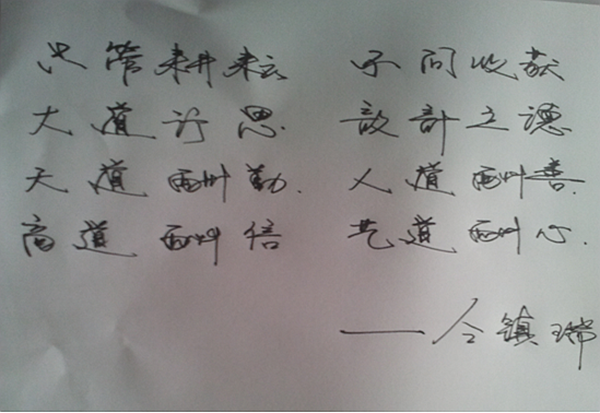 只管耕耘 不问收获
大道行思 设计之德
天道酬勤. 人道酬善.
商道酬信 艺道酬心.
——令镇瑞